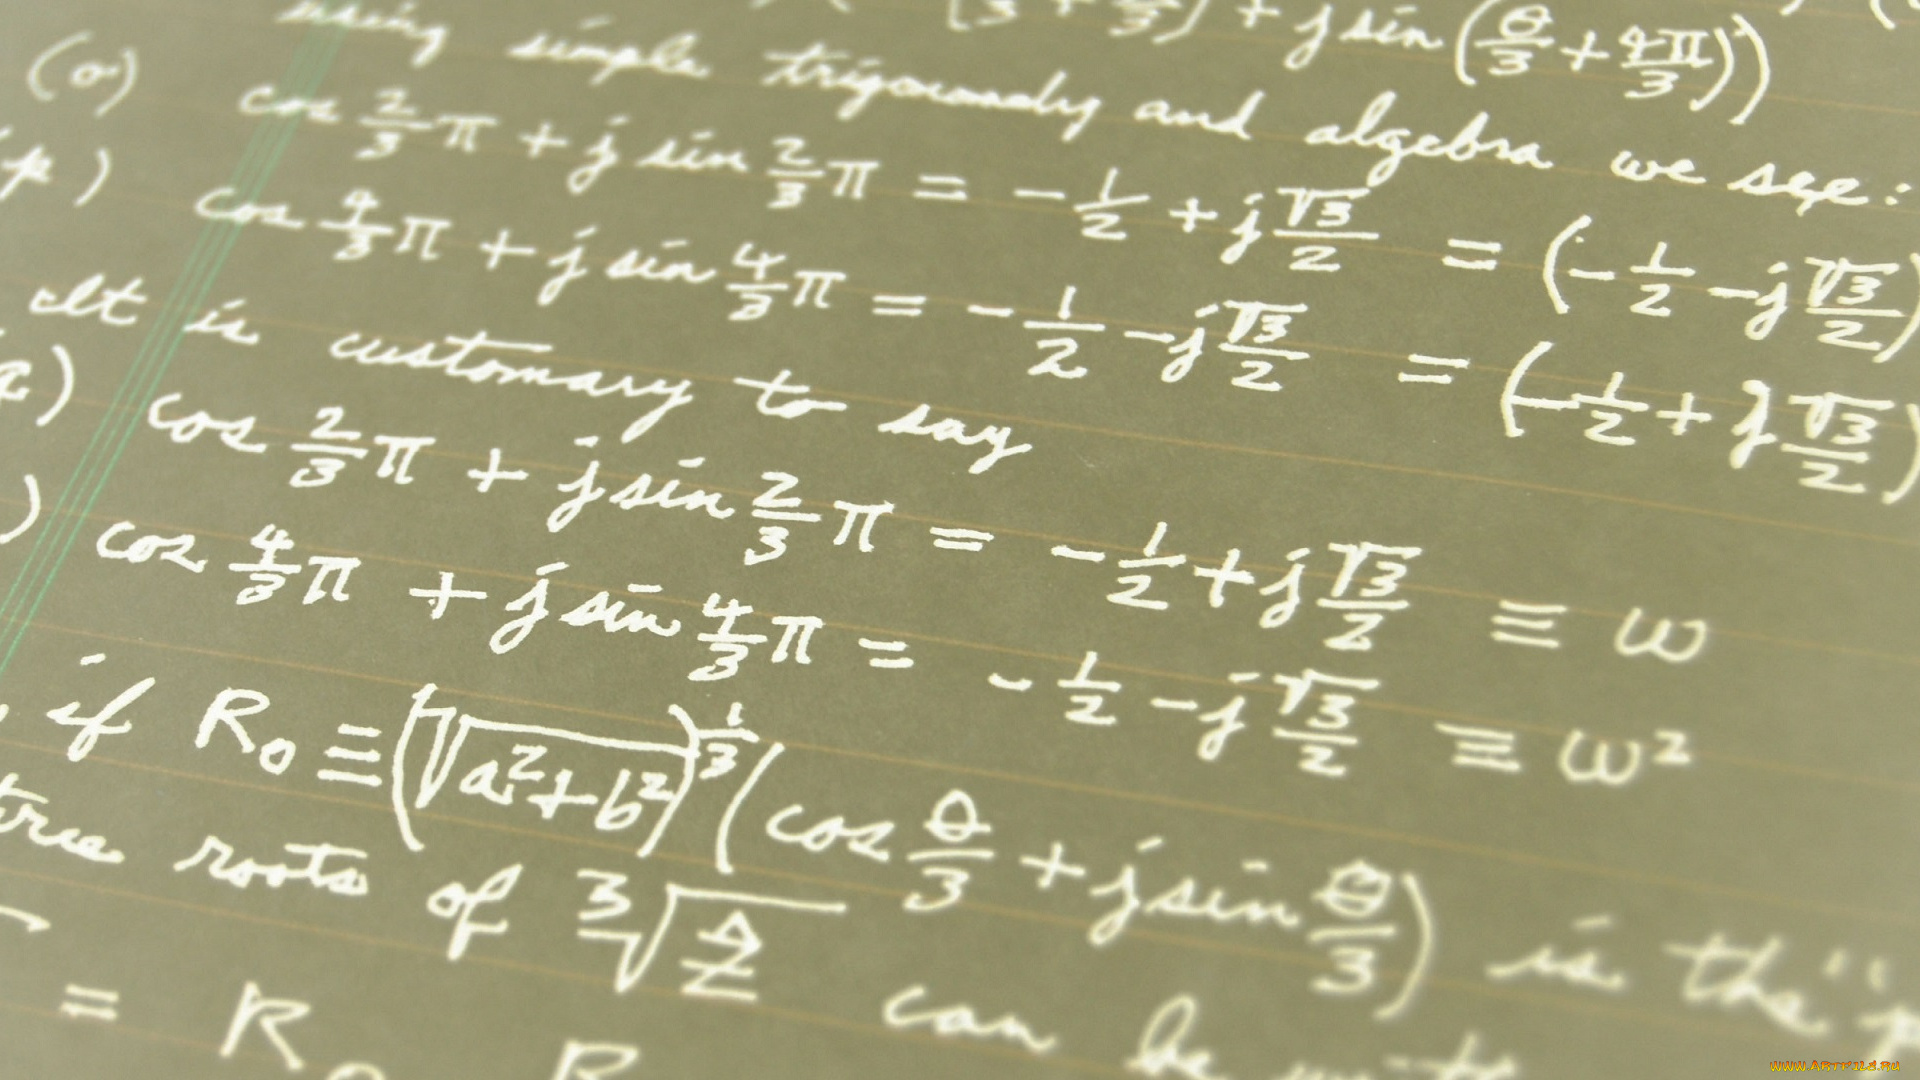 + j sin (θ/3 + 4π/3))
using simple trigonometry and algebra we see:
(o) cos 2/3 π + j sin 2/3 π = -1/2 + j √3/2 = (-1/2 - j √3/2)
(p) cos 4/3 π + j sin 4/3 π = -1/2 - j √3/2 = (-1/2 + j √3/2)
It is customary to say
cos 2/3 π + j sin 2/3 π = -1/2 + j √3/2 ≡ ω
) cos 4/3 π + j sin 4/3 π = -1/2 - j √3/2 ≡ ω²
if R₀ ≡ (√(a²+b²))^(1/3) (cos θ/3 + j sin θ/3) is the "
roots of ³√Ẑ can be
= R₀
WWW.ARTFILE.RU